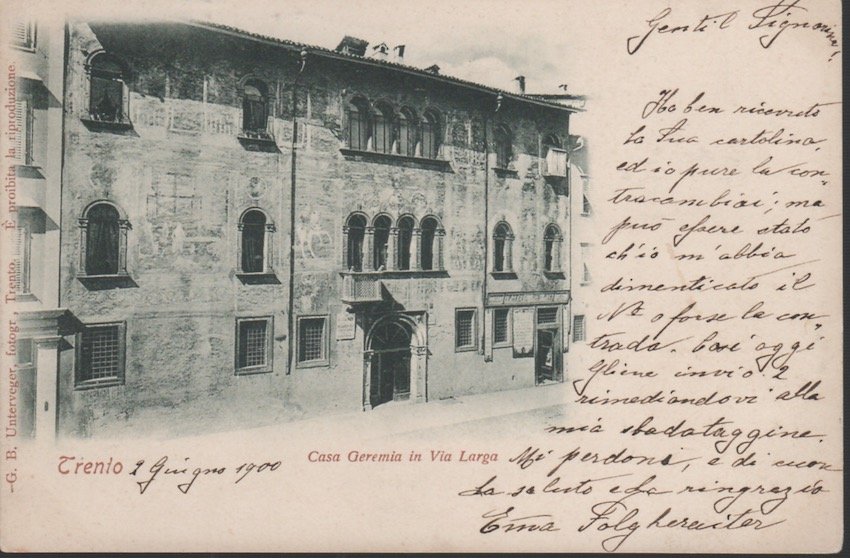 Gentil Signorina!
Ho ben ricevuto
la Sua cartolina,
ed io pure la con=
traccambiai; ma
può essere stato
ch'io m'abbia
dimenticato il
No. o forse la con=
trada. Così oggi
Gliene invio 2
rimediandovi alla
mia sbadataggine.
Mi perdoni, e di cuor
La saluto e La ringrazio
Ema Folghraiter
Trento 2 Giugno 1900
Casa Geremia in Via Larga
G. B. Unterveger, fotogr., Trento. È proibita la riproduzione.